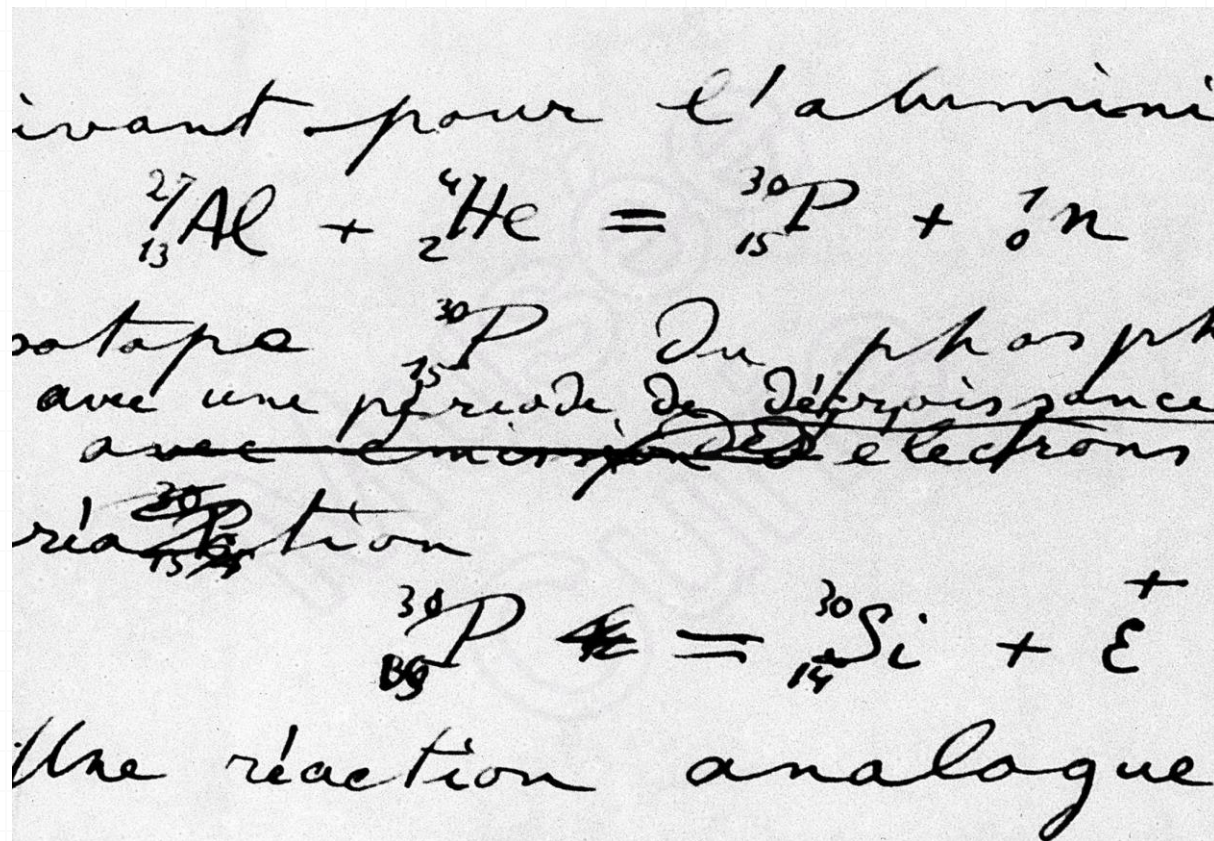 ivant pour l'alumini
²⁷₁₃Al + ⁴₂He = ³⁰₁₅P + ¹₀n
sotope ³⁰₁₅P du phosph
avec une période de décroissance
avec emission d électrons
réaction
³⁰₁₅P = ³⁰₁₄Si + ε⁺
Une réaction analogue